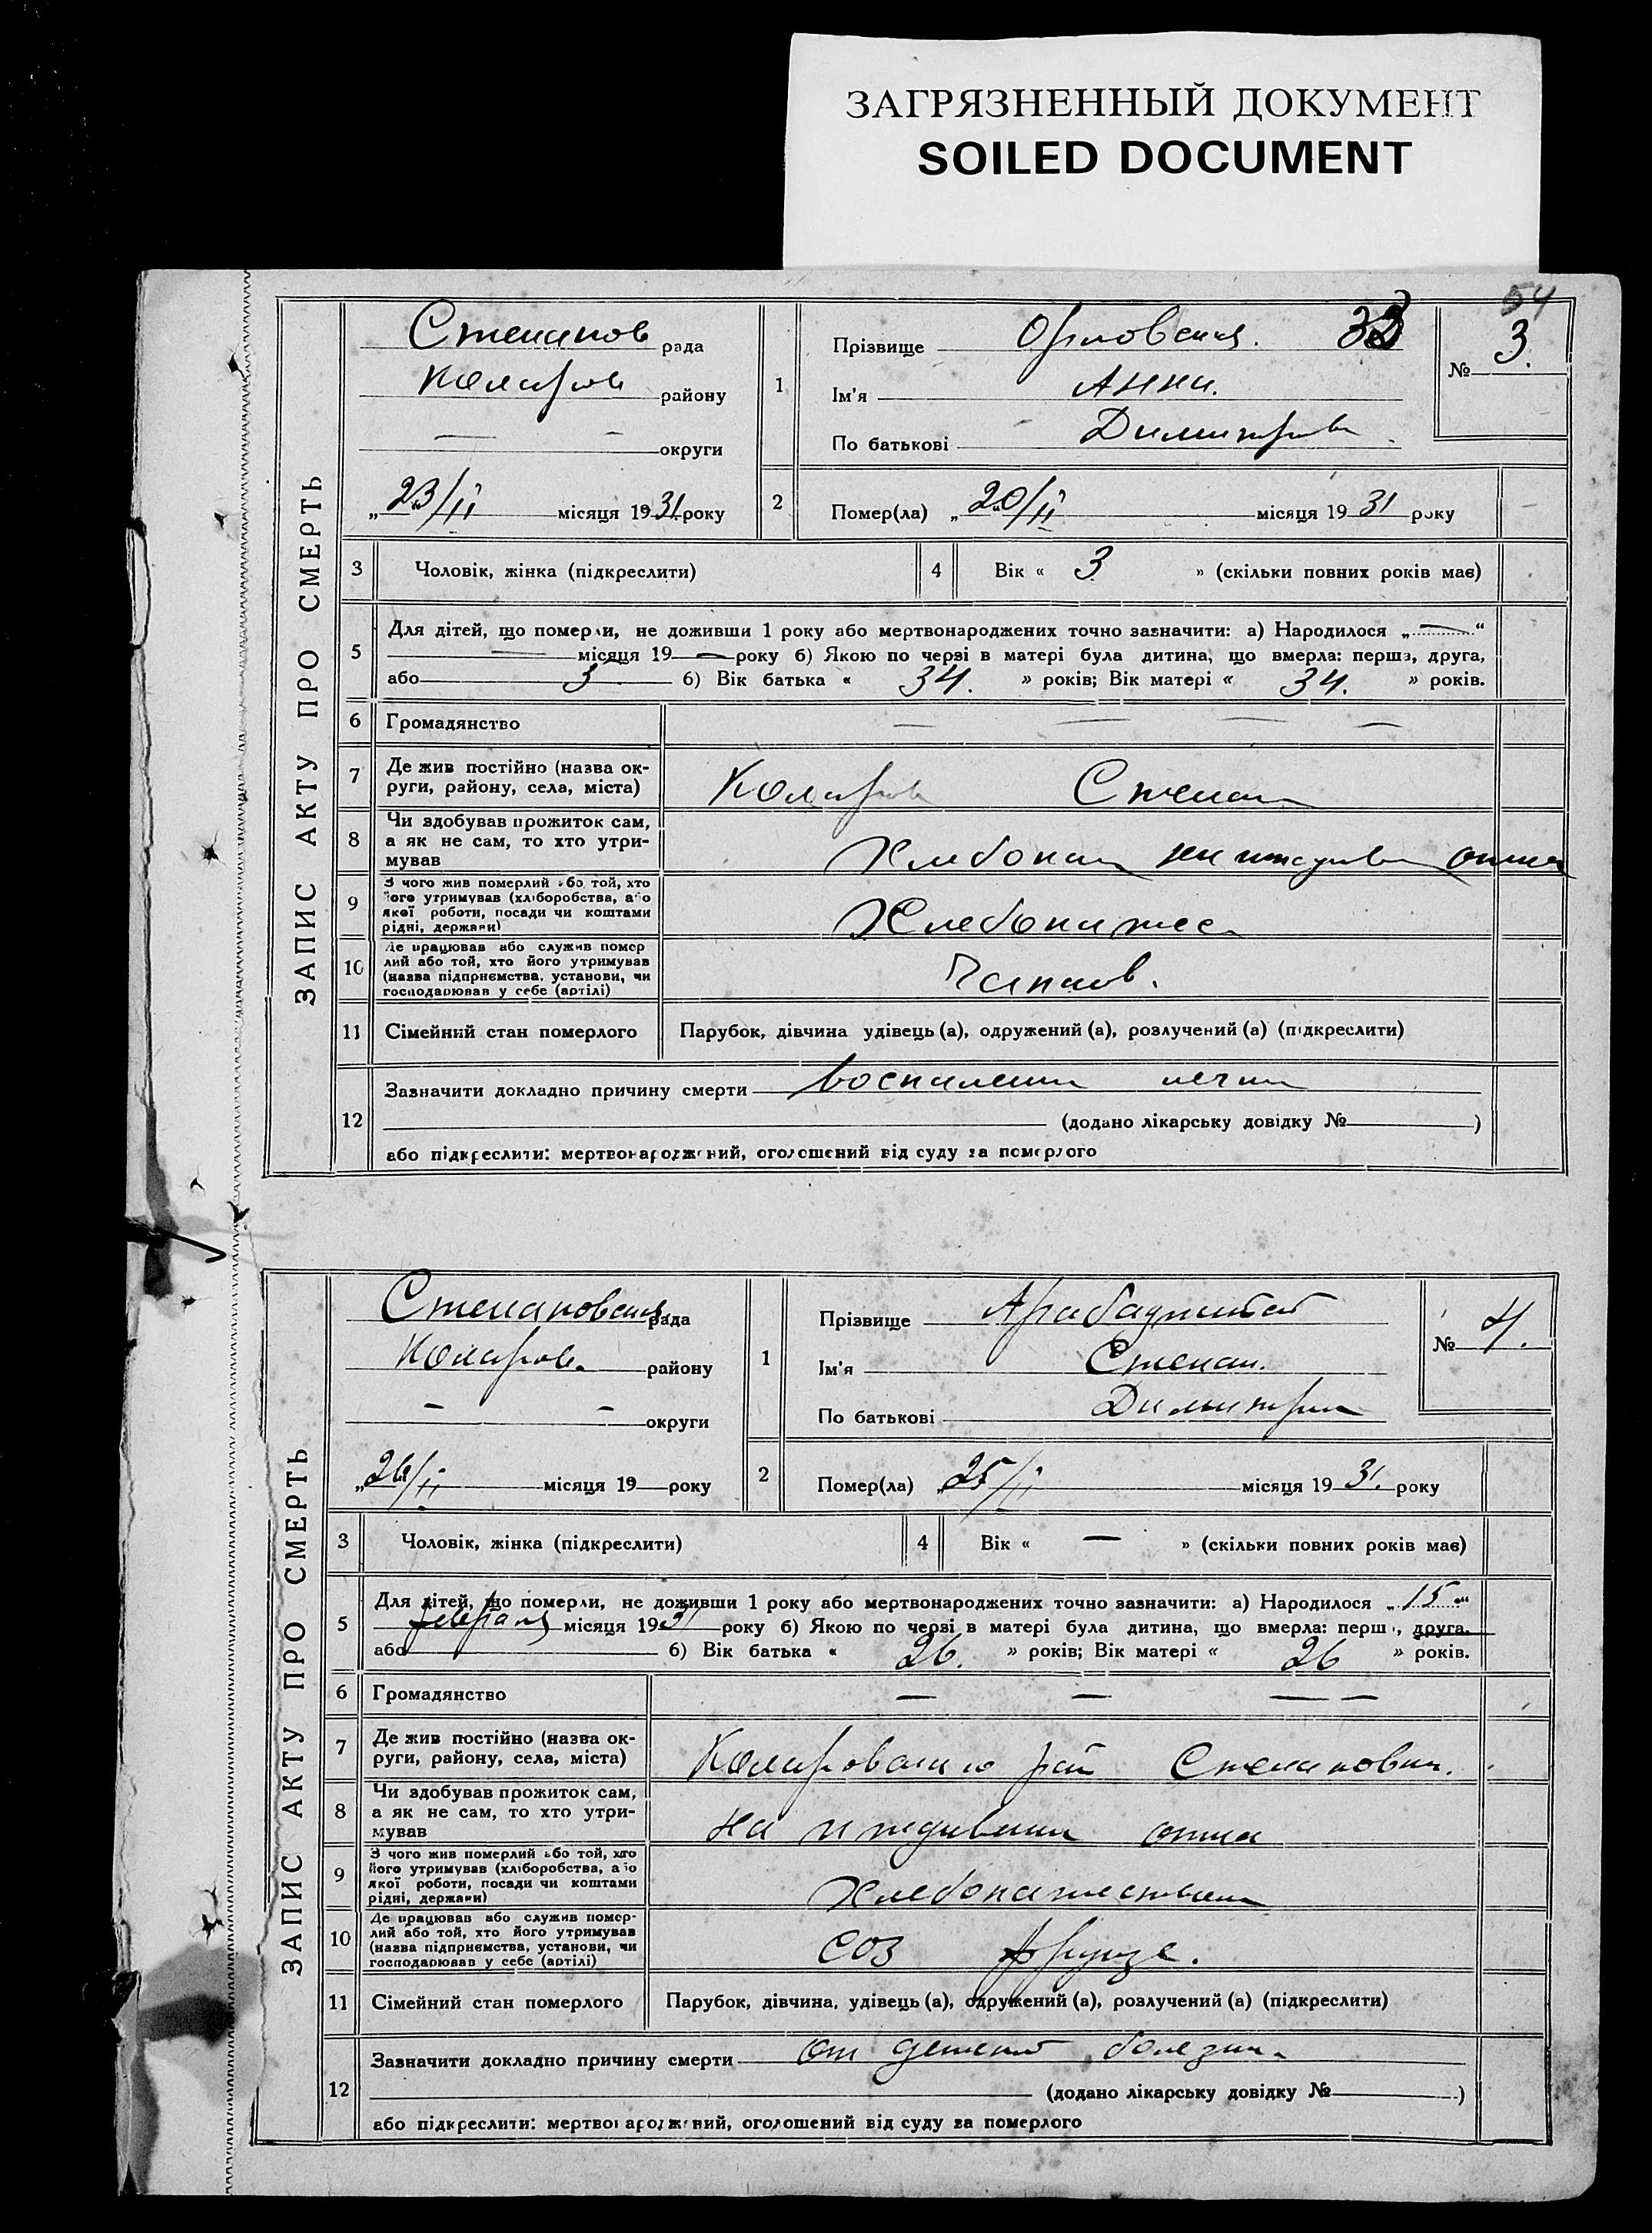 ЗАГРЯЗНЕННЫЙ ДОКУМЕНТ
SOILED DOCUMENT
54
ЗАПИС АКТУ ПРО СМЕРТЬ
Степанов рада
Коларов району
— — округи
„23/II місяця 1931 року
1
Прізвище Орловская. 33
Ім'я Анна.
По батькові Димитров
№ 3.
2 Помер(ла) „20/II місяця 1931 року
3 Чоловік, жінка (підкреслити)
4 Вік « 3 » (скільки повних років має)
5 Для дітей, що померли, не доживши 1 року або мертвонароджених точно зазначити: а) Народилося „—“
— місяця 19— року б) Якою по черзі в матері була дитина, що вмерла: перша, друга,
або 3 б) Вік батька « 34. » років; Вік матері « 34. » років.
6 Громадянство — — — —
7 Де жив постійно (назва ок-
руги, району, села, міста) Коларов Степан
8 Чи здобував прожиток сам,
а як не сам, то хто утри-
мував
9 З чого жив померлий або той, хто
його утримував (хліборобства, або
якої роботи, посади чи коштами
рідні, держави) Хлебопашес
10 Де працював або служив помер
лий або той, хто його утримував
(назва підприємства, установи, чи
господарював у себе (артілі)
11 Сімейний стан померлого Парубок, дівчина удівець (а), одружений (а), розлучений (а) (підкреслити)
12 Зазначити докладно причину смерти воспаления
(додано лікарську довідку № )
або підкреслити: мертвонароджений, оголошений від суду за померлого
ЗАПИС АКТУ ПРО СМЕРТЬ
Степановская рада
Коларов. району
— — округи
„26/II місяця 19 року
1
Прізвище Арабаджий
Ім'я Степан.
По батькові Димитри
№ 4.
2 Помер(ла) „25/II місяця 1931. року
3 Чоловік, жінка (підкреслити)
4 Вік « — » (скільки повних років має)
5 Для дітей, що померли, не доживши 1 року або мертвонароджених точно зазначити: а) Народилося „15“
февраля місяця 1931 року б) Якою по черзі в матері була дитина, що вмерла: перша, друга.
або б) Вік батька « 26. » років; Вік матері « 26 » років.
6 Громадянство — — — —
7 Де жив постійно (назва ок-
руги, району, села, міста) Коларовского рай Степановки.
8 Чи здобував прожиток сам,
а як не сам, то хто утри-
мував на иждивении отца
9 З чого жив померлий або той, хто
його утримував (хліборобства, або
якої роботи, посади чи коштами
рідні, держави) Хлебопашеством
10 Де працював або служив помер-
лий або той, хто його утримував
(назва підприємства, установи, чи
господарював у себе (артілі) СОЗ Фрунзе.
11 Сімейний стан померлого Парубок, дівчина, удівець (а), одружений (а), розлучений (а) (підкреслити)
12 Зазначити докладно причину смерти от детской болезни
(додано лікарську довідку № )
або підкреслити: мертвонароджений, оголошений від суду за померлого